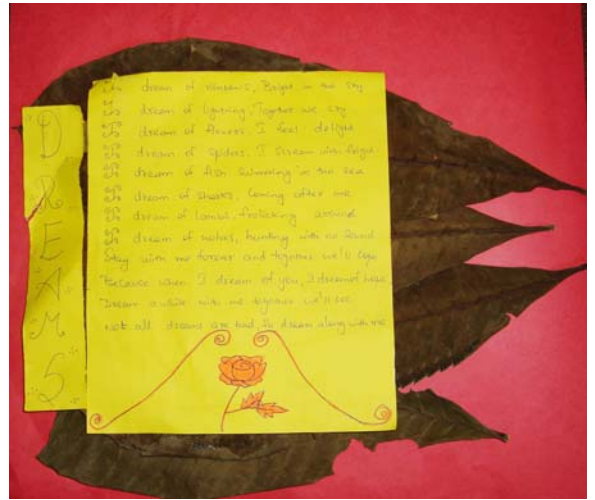 DREAMS
dream of rainbows, Bright in the sky
dream of lightning, Together we cry
dream of flowers, I feel delight
dream of spiders, I scream with fright
dream of fish swimming in the sea
dream of sharks, Coming after me
dream of lambs, frolicking around
dream of wolves, hunting with no sound
Stay with me forever and together we'll
Because when I dream of you, I dream of hope
Dream awhile with me together we'll see
Not all dreams are bad, So dream along with me